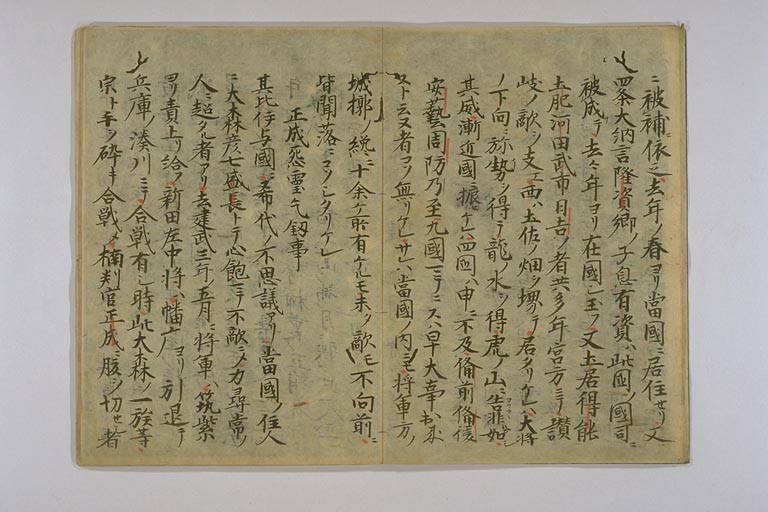 ニ被補依之去年ノ春ヨリ當國ニ居住セリ又
四条大納言隆資卿ノ子息有資ハ此國ノ國司ニ
被成テ去々年ヨリ在國シ玉フ又土居得能
土肥河田武市日吉ノ者共多年宮方ニテ讃
岐ノ敵ヲ支エ西ハ土佐ノ畑ヲ堺テ居タリケレハ大将
ノ下向ニ弥勢ヲ得テ龍ノ水ヲ得虎ノ山ニ靠如
其威漸近國ニ振ヒケレハ四國ハ申ニ不及備前備後
安藝周防乃至九國ニテニスハ早大事出来
ヌト云又者コソ無リケレサレハ當國ノ内ニモ将軍方ノ
城槨ノ統ニ十余ケ所有ケレモ未タ敵モ不向前ニ
皆聞落ニコソシタリケレ
正成怨霊乞釼事
其比伊与國ニ希代ノ不思議アリ當國ノ住人
ニ大森彦七盛長トテ心飽ニテ不敵メ力尋常ノ
人ニ超タル者アリ去建武三年ノ五月ニ将軍ハ筑紫
ヨリ責上リ給フ新田左中将ハ幡广ヨリ引退テ
兵庫湊川ニテ合戦有シ時此大森ノ一族等
宗ト手ヲ砕キ合戦メ楠判官正成ニ腹ヲ切セシ者